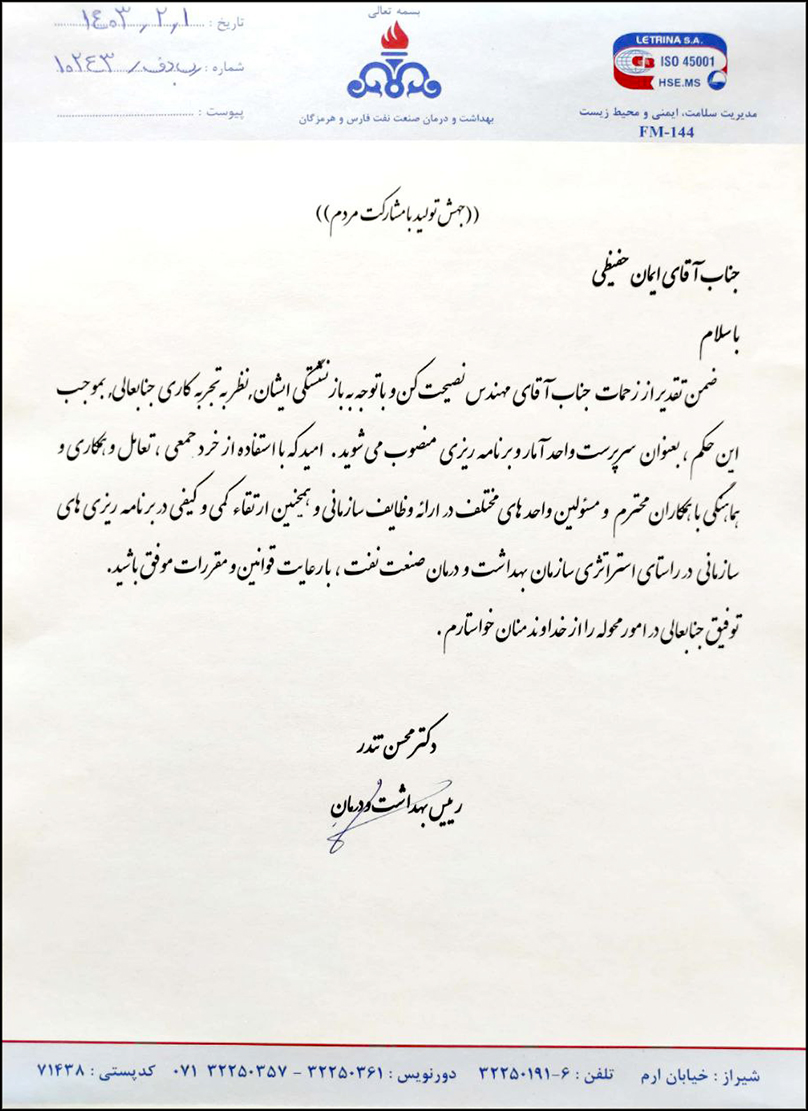 بسمه تعالی
تاریخ : ۱۴۰۳٫۲٫۱
شماره : ب دف/ ۱۰۲۴۳
پیوست :
LETRINA S.A.
ISO 45001
HSE.MS
مدیریت سلامت، ایمنی و محیط زیست
FM-144
بهداشت و درمان صنعت نفت فارس و هرمزگان
((جهش تولید با مشارکت مردم))
جناب آقای ایمان حفیظی
با سلام
ضمن تقدیر از زحمات جناب آقای مهندس نصیحت کن و با توجه به بازنشستگی ایشان, نظر به تجربه کاری جنابعالی, بموجب
این حکم ، بعنوان سرپرست واحد آمار و برنامه ریزی منصوب می شوید . امید که با استفاده از خرد جمعی ، تعامل و همکاری و
هماهنگی با همکاران محترم و مسئولین واحد های مختلف در ارائه وظایف سازمانی و همچنین ارتقاء کمی و کیفی در برنامه ریزی های
سازمانی در راستای استراتژی سازمان بهداشت و درمان صنعت نفت ، با رعایت قوانین و مقررات موفق باشید.
توفیق جنابعالی در امور محوله را از خداوند منان خواستارم .
دکتر محسن تندر
رییس بهداشت و درمان
شیراز : خیابان ارم تلفن : ۶-۳۲۲۵۰۱۹۱ دورنویس : ۳۲۲۵۰۳۶۱ - ۳۲۲۵۰۳۵۷ ۰۷۱ کدپستی : ۷۱۴۳۸